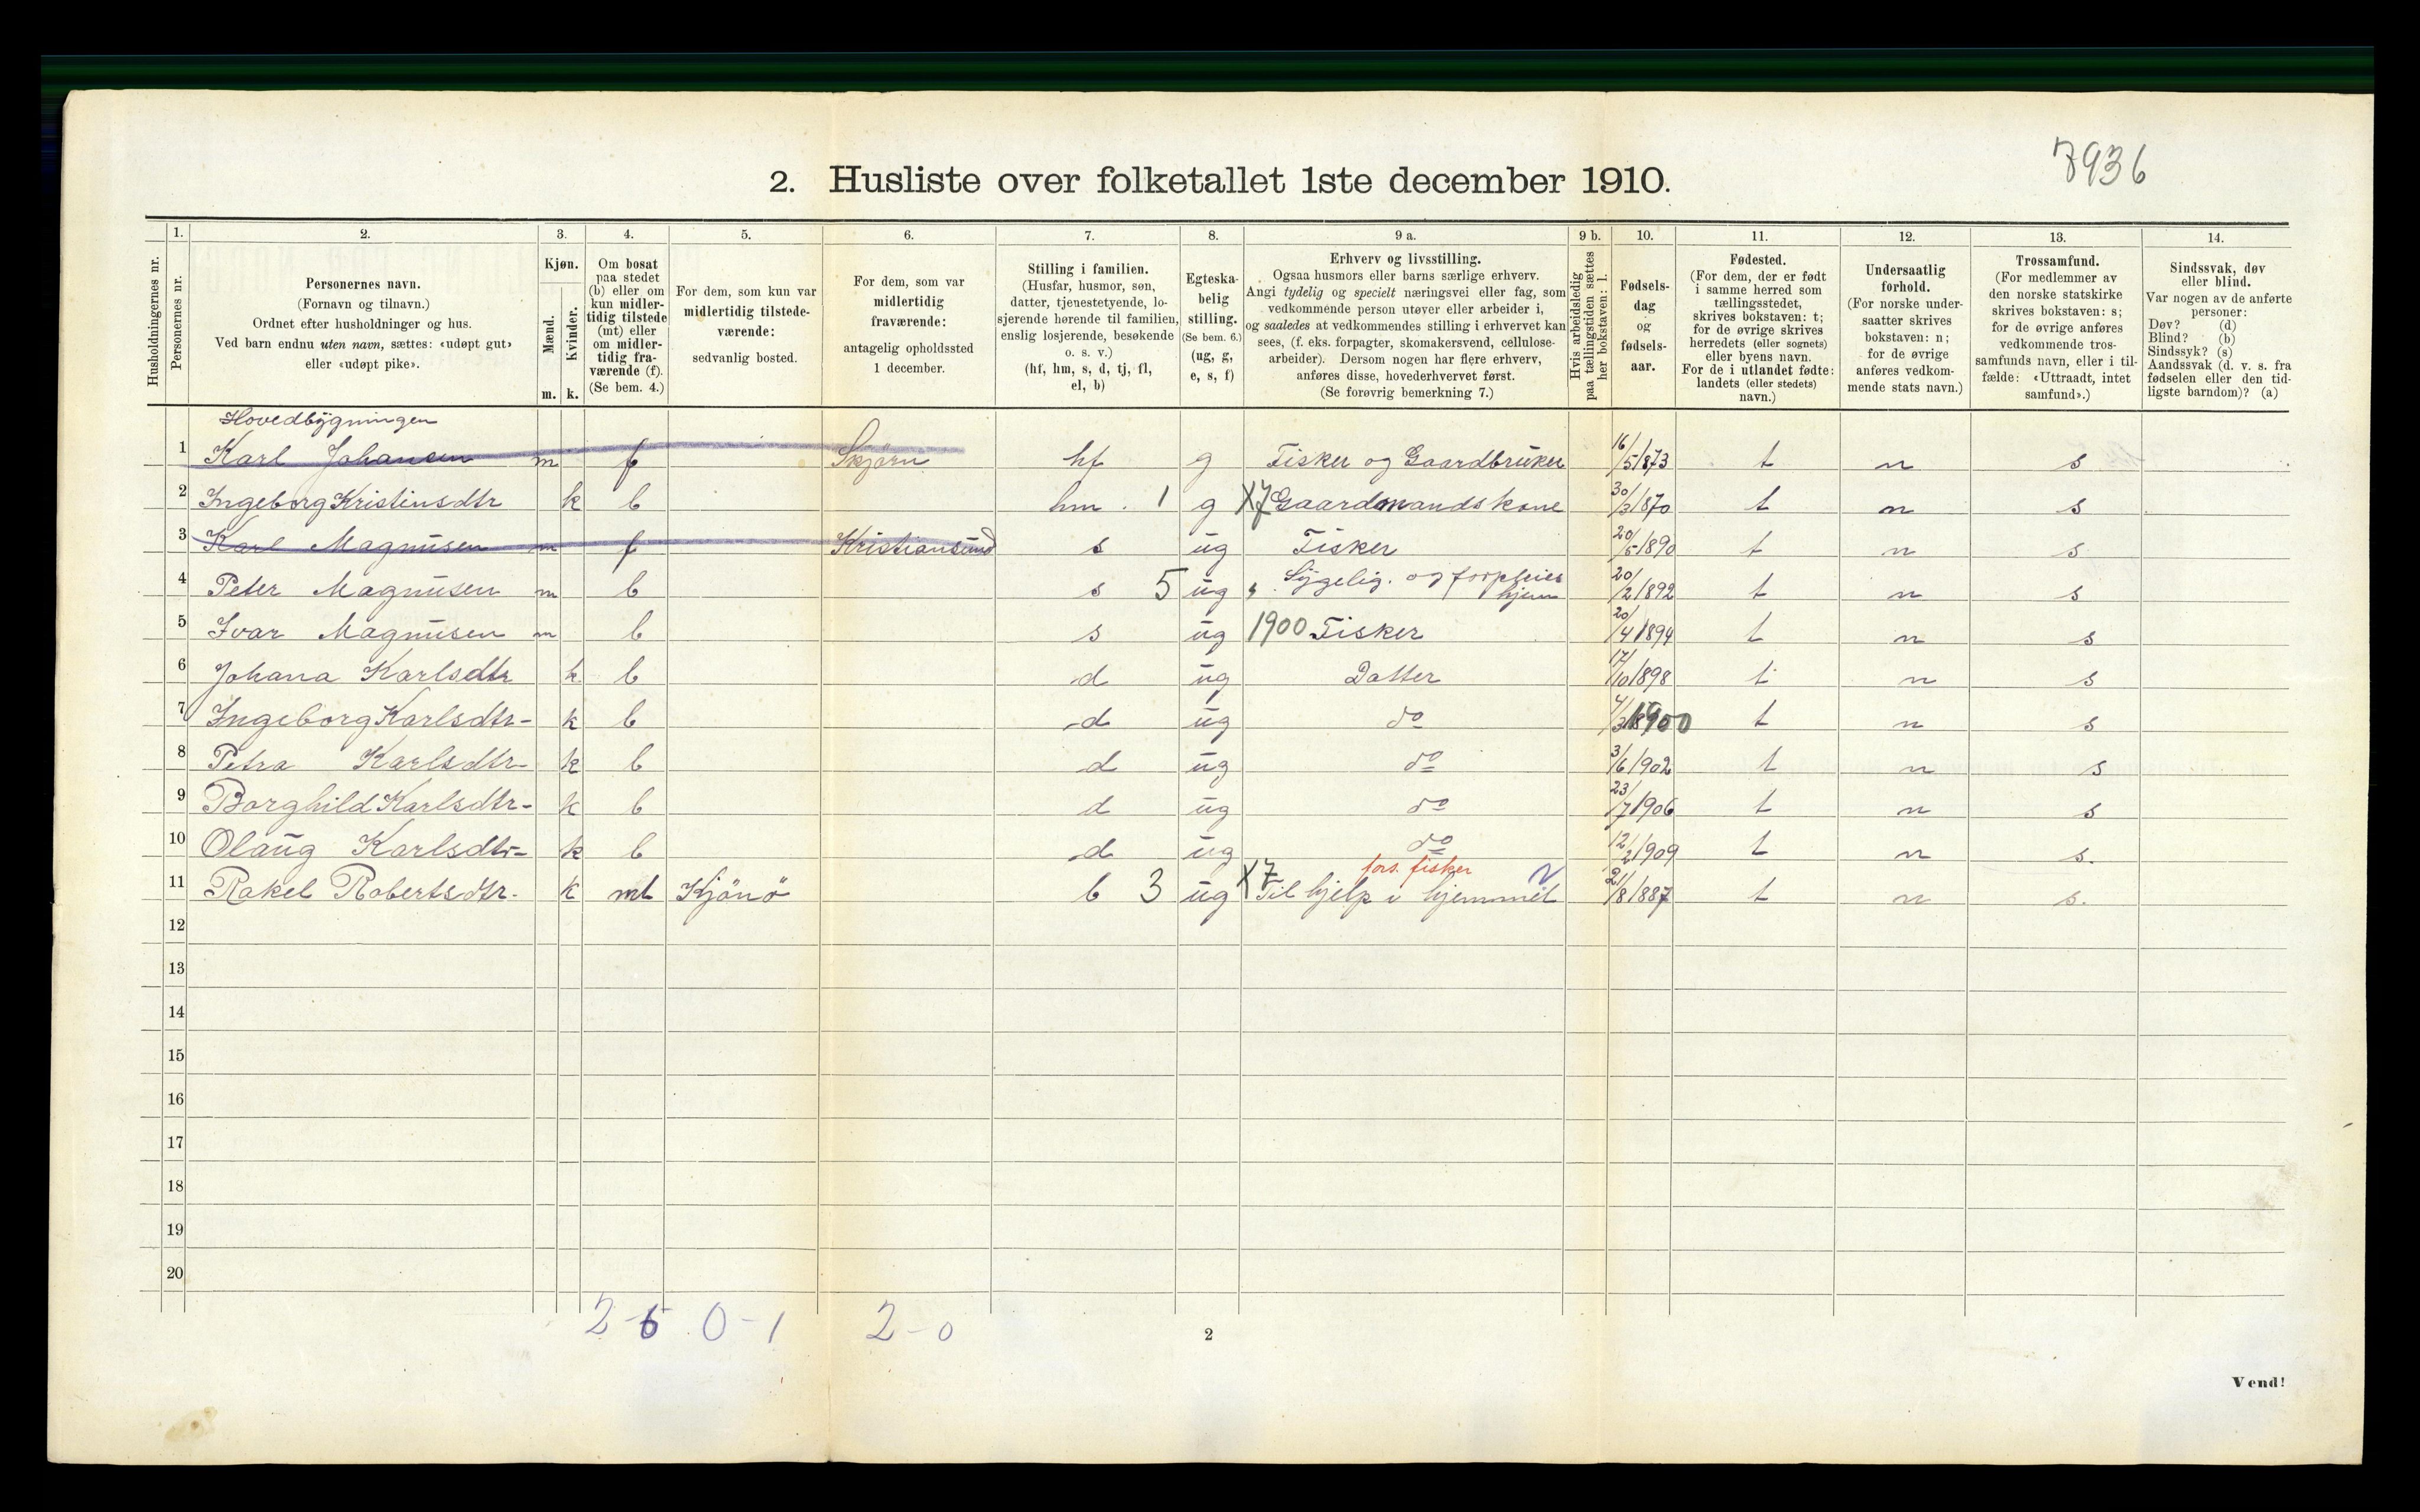 7936
2. Husliste over folketallet 1ste december 1910.
Husholdningernes nr.
1.
Personernes nr.
2.
Personernes navn.
(Fornavn og tilnavn.)
Ordnet efter husholdninger og hus.
Ved barn endnu uten navn, sættes: «udøpt gut»
eller «udøpt pike».
3.
Kjøn.
Mænd.
Kvinder.
m. k.
4.
Om bosat
paa stedet
(b) eller om
kun midler-
tidig tilstede
(mt) eller
om midler-
tidig fra-
værende (f).
(Se bem. 4.)
5.
For dem, som kun var
midlertidig tilstede-
værende:
sedvanlig bosted.
6.
For dem, som var
midlertidig
fraværende:
antagelig opholdssted
1 december.
7.
Stilling i familien.
(Husfar, husmor, søn,
datter, tjenestetyende, lo-
sjerende hørende til familien,
enslig losjerende, besøkende
o. s. v.)
(hf, hm, s, d, tj, fl,
el, b)
8.
Egteska-
belig
stilling.
(Se bem. 6.)
(ug, g,
e, s, f)
9 a.
Erhverv og livsstilling.
Ogsaa husmors eller barns særlige erhverv.
Angi tydelig og specielt næringsvei eller fag, som
vedkommende person utøver eller arbeider i,
og saaledes at vedkommendes stilling i erhvervet kan
sees, (f. eks. forpagter, skomakersvend, cellulose-
arbeider). Dersom nogen har flere erhverv,
anføres disse, hovederhvervet først.
(Se forøvrig bemerkning 7.)
9 b.
Hvis arbeidsledig
paa tællingstiden sættes
her bokstaven: l.
10.
Fødsels-
dag
og
fødsels-
aar.
11.
Fødested.
(For dem, der er født
i samme herred som
tællingsstedet,
skrives bokstaven: t;
for de øvrige skrives
herredets (eller sognets)
eller byens navn.
For de i utlandet fødte:
landets (eller stedets)
navn.)
12.
Undersaatlig
forhold.
(For norske under-
saatter skrives
bokstaven: n;
for de øvrige
anføres vedkom-
mende stats navn.)
13.
Trossamfund.
(For medlemmer av
den norske statskirke
skrives bokstaven: s;
for de øvrige anføres
vedkommende tros-
samfunds navn, eller i til-
fælde: «Uttraadt, intet
samfund».)
14.
Sindssvak, døv
eller blind.
Var nogen av de anførte
personer:
Døv? (d)
Blind? (b)
Sindssyk? (s)
Aandssvak (d. v. s. fra
fødselen eller den tid-
ligste barndom)? (a)
Hovedbygningen
1 Karl Johansen m f Skjörn hf g Fisker og Gaardbruker 16/5 1873 t n s
2 Ingeborg Kristinsdtr k b hm. 1 g X7 Gaardmandskone 30/3 1870 t n s
3 Karl Magnusen m f Kristiansund s ug Fisker 20/5 1890 t n s
4 Peter Magnusen m b s 5 ug Sygelig. og forpleies hjem 20/2 1892 t n s
5 Ivar Magnusen m b s ug 1900 Fisker 20/4 1894 t n s
6 Johana Karlsdtr k b d ug Datter 17/10 1898 t n s
7 Ingeborg Karlsdtr- k b d ug do 1900 t n s
8 Petra Karlsdtr- k b d ug do 3/6 1902 t n s
9 Borghild Karlsdtr- k b d ug do 23/7 1906 t n s
10 Olaug Karlsdtr- k b d ug do 12/2 1909 t n s.
fors. fisker
11 Rakel Robertsdtr. k mt Kjönö b 3 ug X7 Til hjelp i hjemmet 21/8 1887 t n s.
12
13
14
15
16
17
18
19
20
2-6 0-1 2-0
2
Vend!